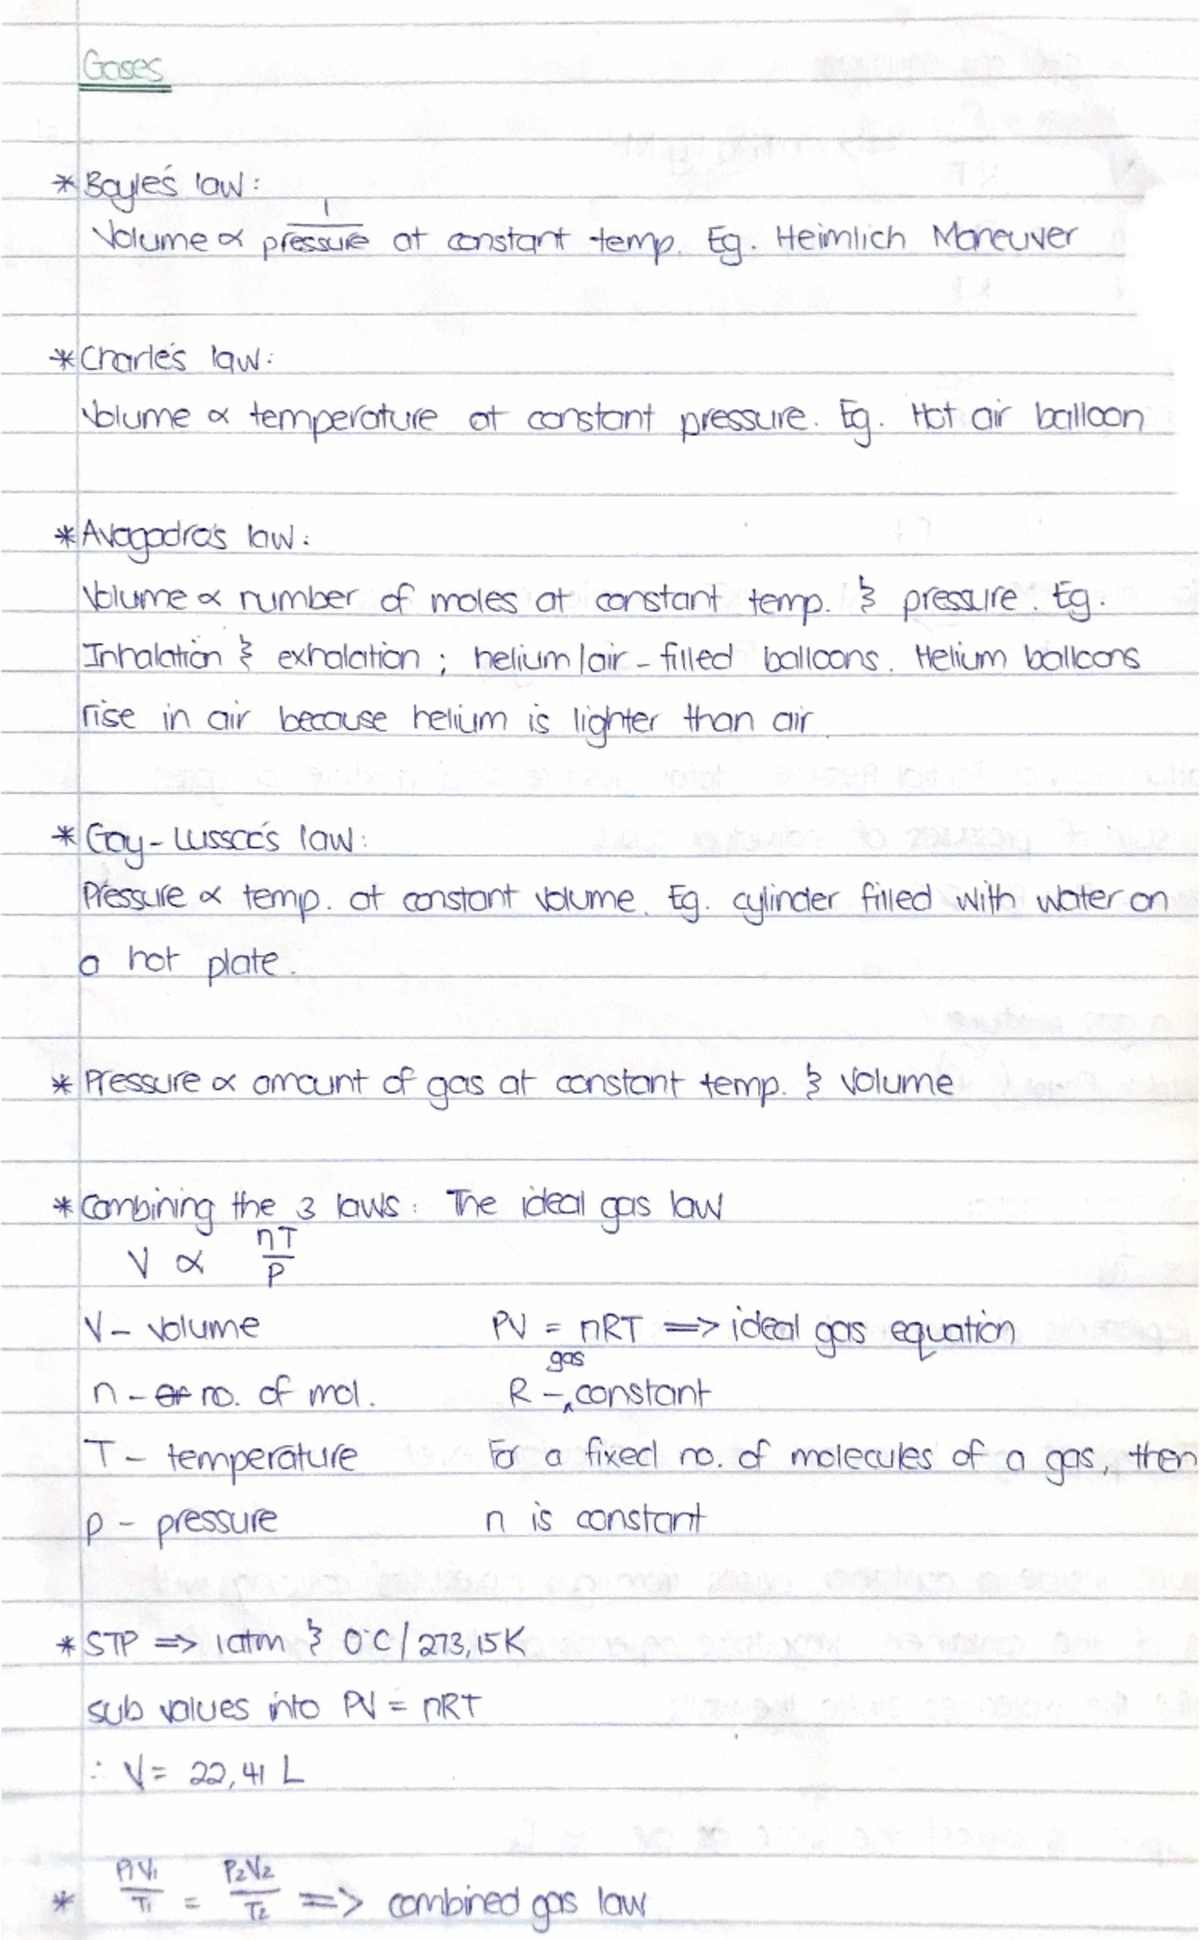 Gases
* Boyle's law:
Volume ∝ 1/pressure at constant temp. Eg. Heimlich Maneuver
* Charle's law:
Volume ∝ temperature at constant pressure. Eg. Hot air balloon
* Avagadro's law:
Volume ∝ number of moles at constant temp. & pressure. Eg.
Inhalation & exhalation ; helium/air-filled balloons. Helium balloons
rise in air because helium is lighter than air.
* Gay-Lussac's law:
Pressure ∝ temp. at constant volume. Eg. cylinder filled with water on
a hot plate.
* Pressure ∝ amount of gas at constant temp. & volume
* Combining the 3 laws: The ideal gas law
V ∝ nT/P
V - volume PV = nRT => ideal gas equation
n - no. of mol. R - gas constant
T - temperature For a fixed no. of molecules of a gas, then
p - pressure n is constant
* STP => 1atm & 0°C / 273,15K
sub values into PV = nRT
∴ V = 22,41 L
* P1V1/T1 = P2V2/T2 => combined gas law